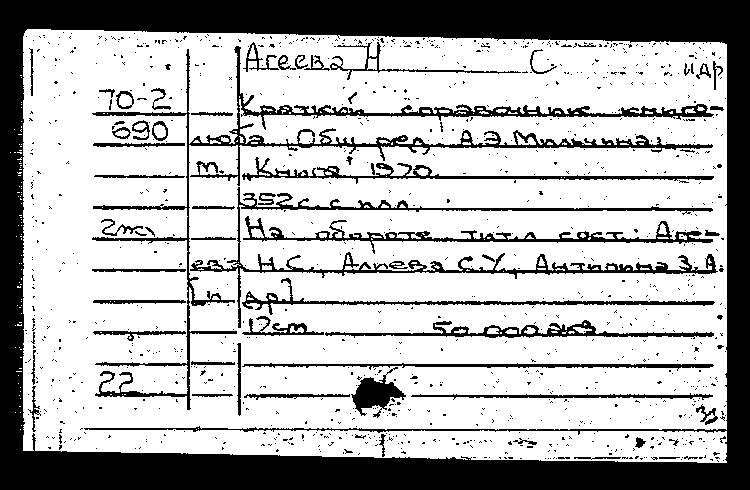 Агеева, Н С и др
70-2 Краткий справочник книго-
690 люба. Общ. ред. А.Э.Мильчина.
М., "Книга", 1970.
352 с. с илл.
На обороте тит.л сост.: Аге-
ева Н.С., Алиева С.У., Антипина З.А.
[и др].
17см 50.000 экз.
22